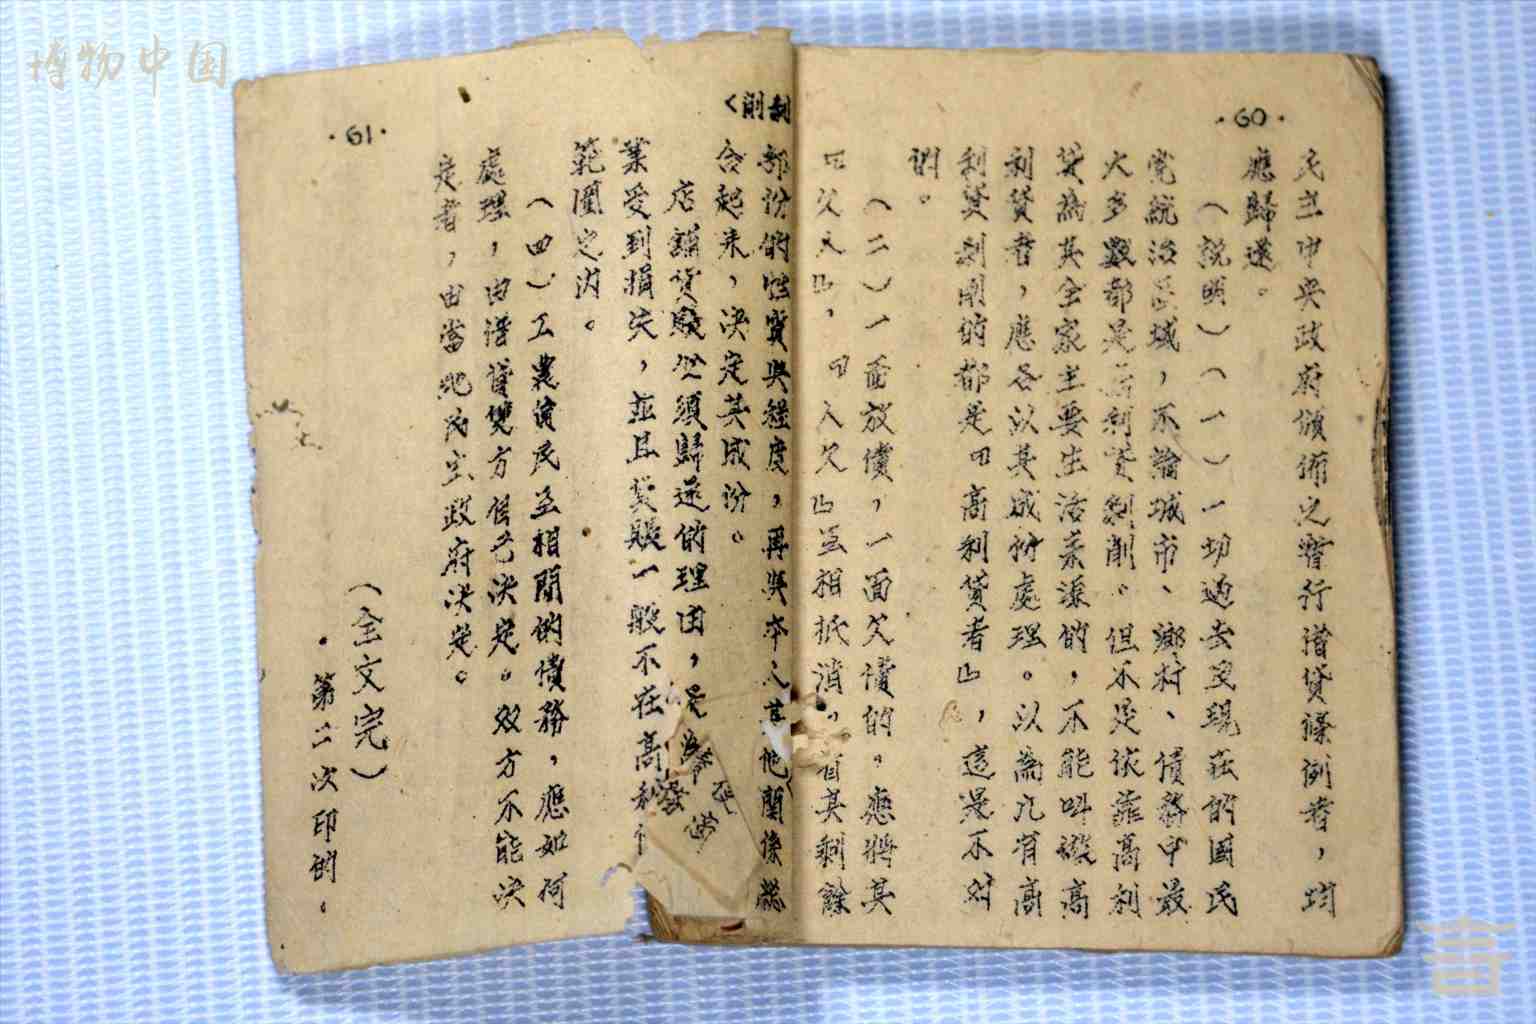 博物中国
·60·
民主中央政府頒佈之暫行借貸條例者，均
應歸還。
（說明）（一）一切過去及現在的國民
党統治區域，不論城市、鄉村、債務中最
大多數都是高利貸剝削。但不是依靠高利
貸為其全家主要生活來源的，不能叫做高
利貸者，應各以其成份處理。以為凡有高
利貸剝削的都是『高利貸者』，這是不对
的。
（二）一面放債，一面欠債的。應將其
『欠人』，『人欠』互相抵消，有其剩餘
剝削
部份的性質與程度，再與本人其他關係總
合起來，决定其成份。
店鋪貨賬必須歸還的理由，是
業受到損失，並且貨賬一般不在高利
範圍之內。
（四）工農貧民互相間的債務，應如何
處理，由借貸雙方自己决定。双方不能决
定者，由當地民主政府决定。
（全文完）
·第二次印的。
·61·